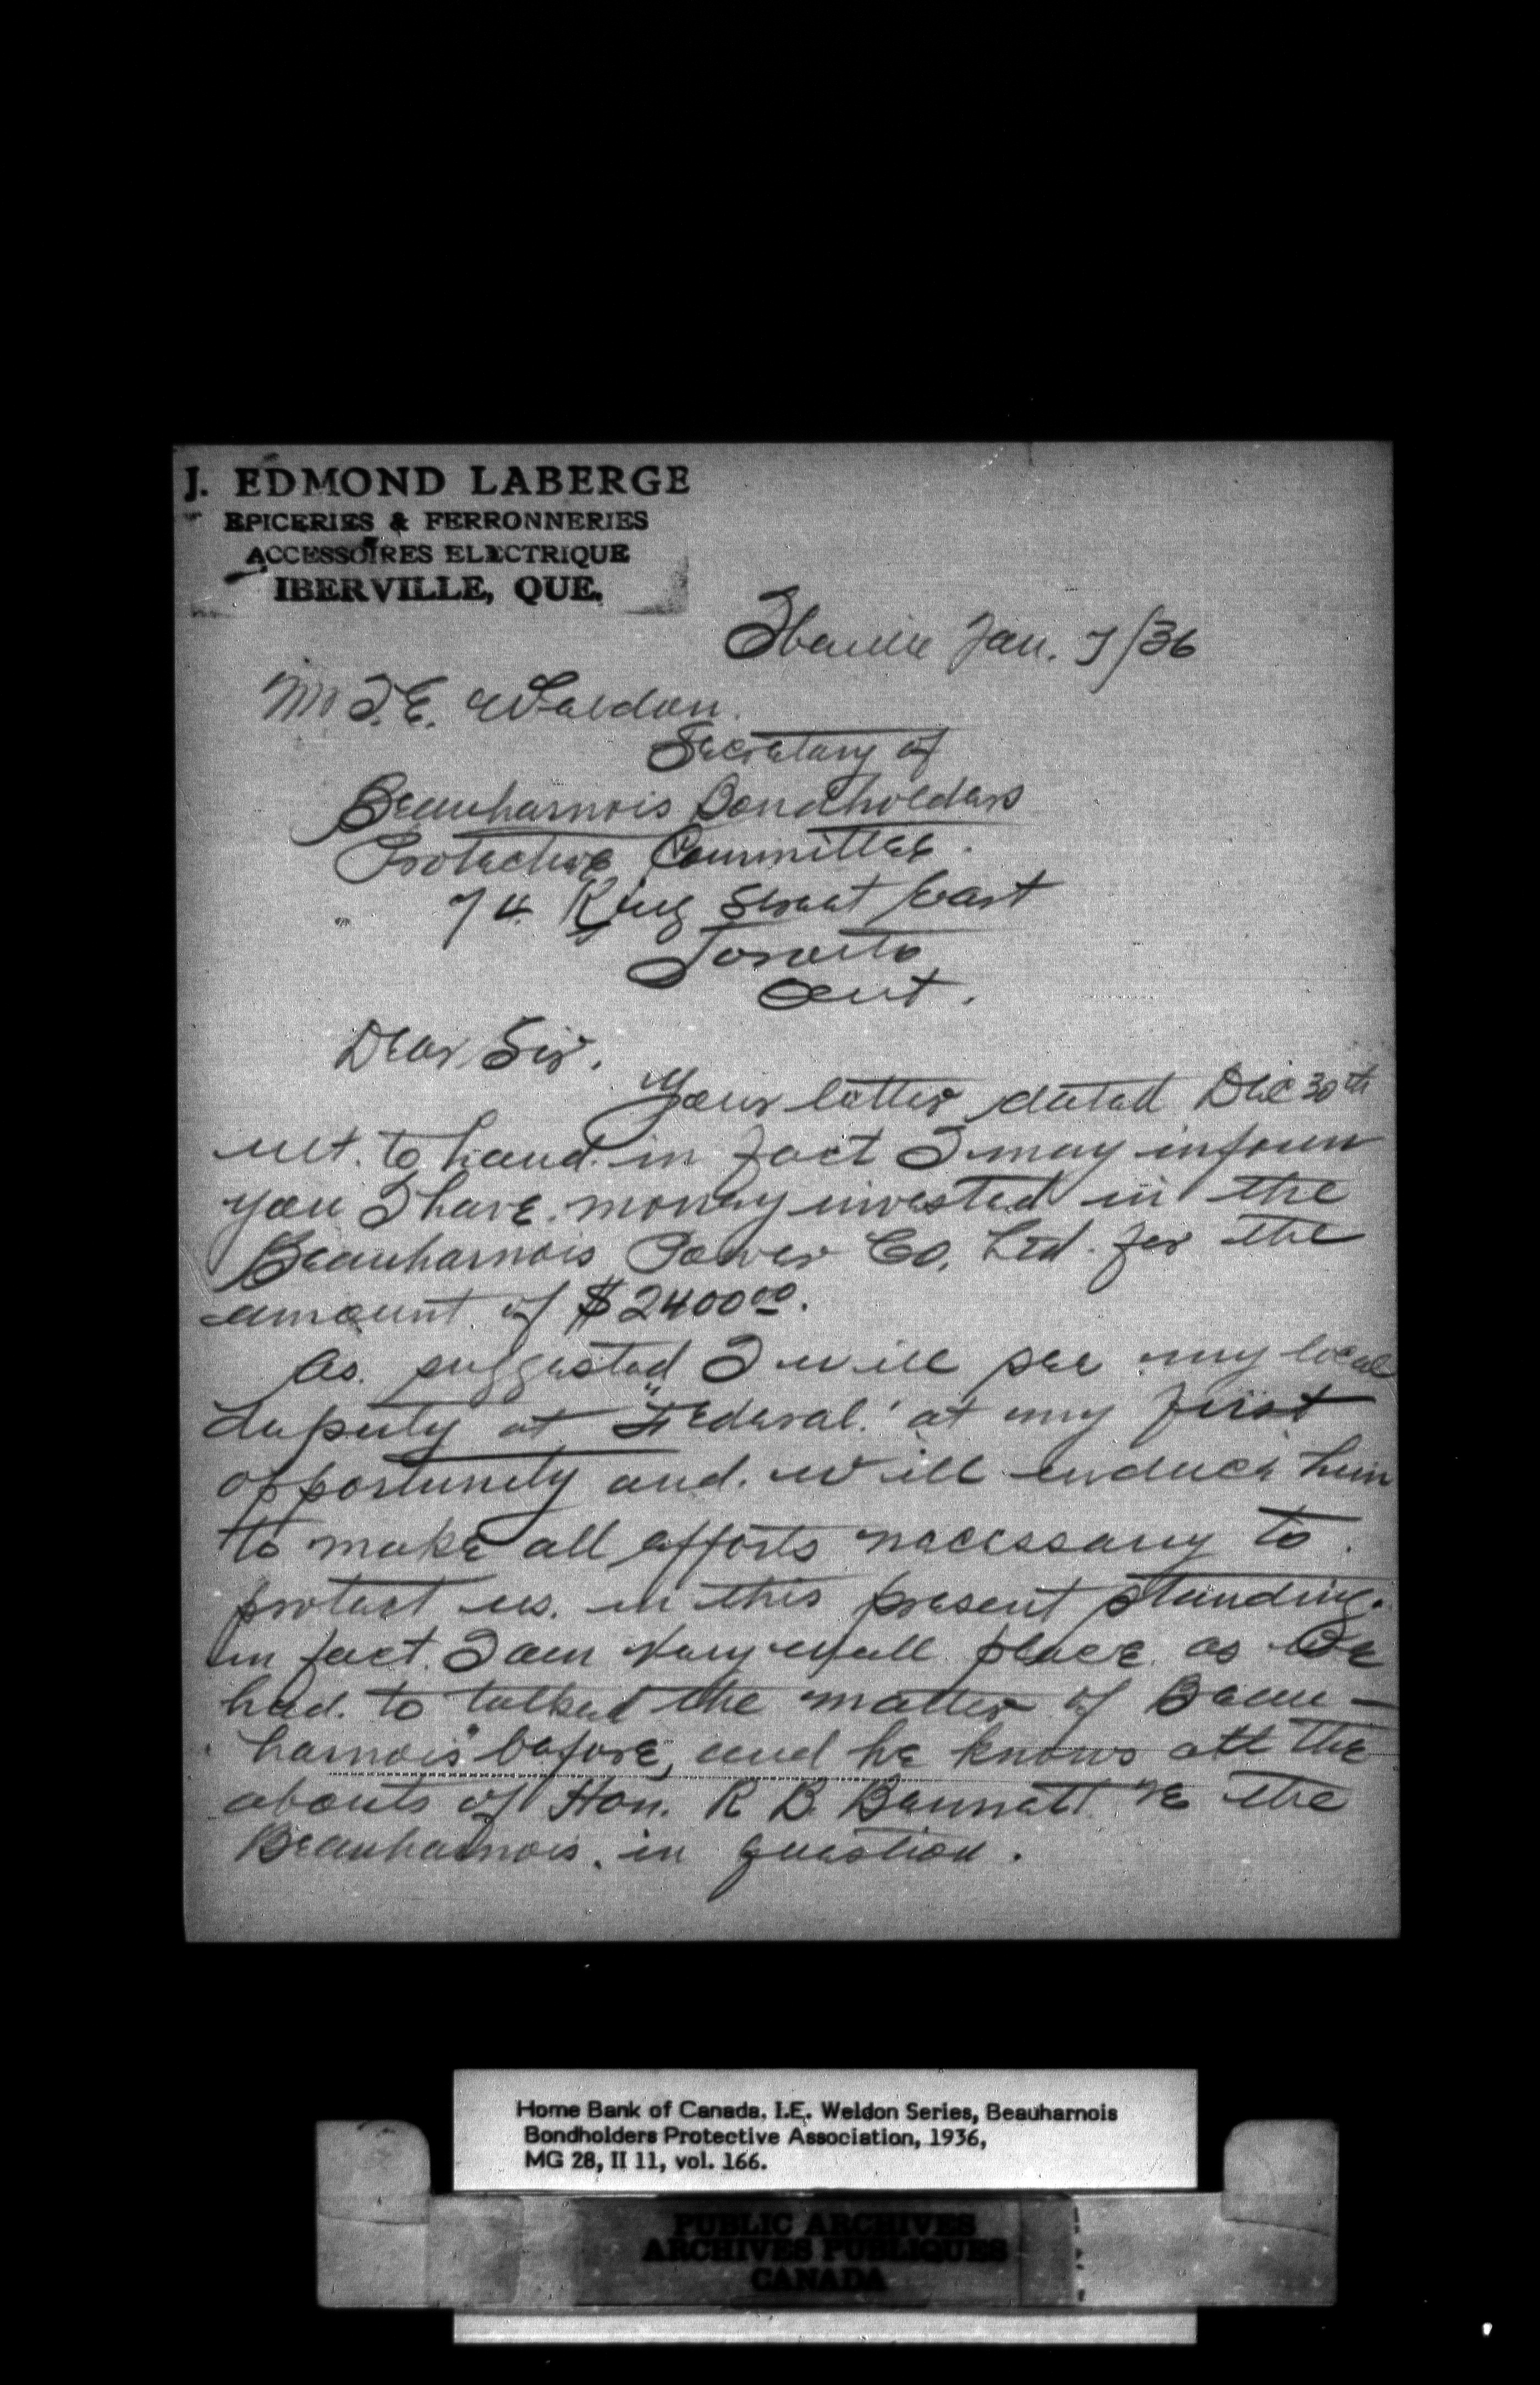 J. EDMOND LABERGE
EPICERIES & FERRONNERIES
ACCESSOIRES ELECTRIQUE
IBERVILLE, QUE.
Iberville Jan. 7/36
Mr I.E. Weldon.
Secretary of
Beauharnois Bondholders
Protective Committee.
74 King Street East
Toronto
Ont.
Dear Sir.
Your letter dated Dec 30th
ult. to hand. in fact I may inform
you I have. money invested in the
Beauharnois Power Co. Ltd. for the
amount of $2400.00.
As. suggested I will see my local
deputy at "Federal." at my first
opportunity and. will enduce him
to make all efforts necessary to
protect us. in this present standing.
in fact. I am very well place. as we
had. to talked the matter of Beau-
harnois" before, and he knows all the
abouts of Hon. R B. Bennett & the
Beauharnois. in question.
Home Bank of Canada, I.E. Weldon Series, Beauharnois
Bondholders Protective Association, 1936,
MG 28, II 11, vol. 166.
PUBLIC ARCHIVES
ARCHIVES PUBLIQUES
CANADA